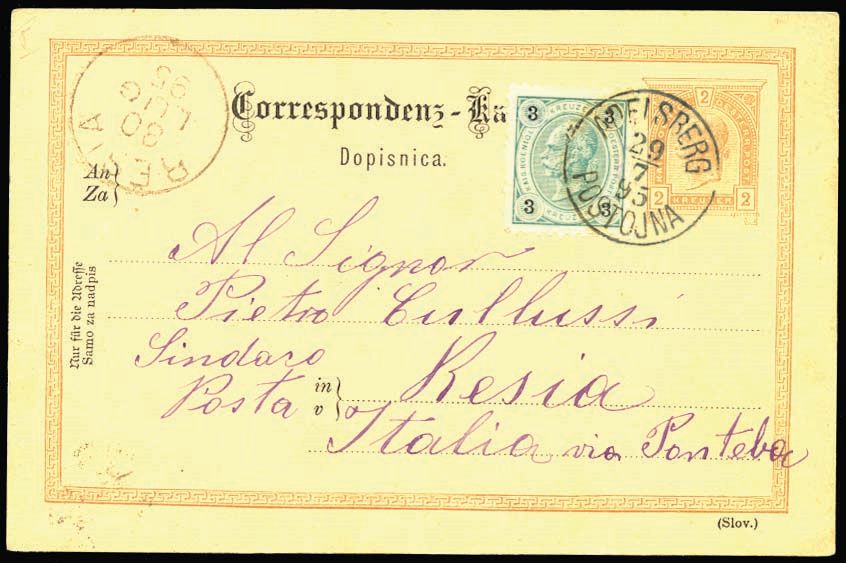 Correspondenz-Ka
Dopisnica.
3 KREUZER 3
3 3
2
2 KREUZER 2
ADELSBERG
29
7
95
POSTOJNA
RESIA
30
LUG
95
An
Za
Nur für die Adresse
Samo za nadpis
Al Signor
Pietro Cullussi
Sindaco
Posta in Resia
v
Italia via Ponteba
(Slov.)